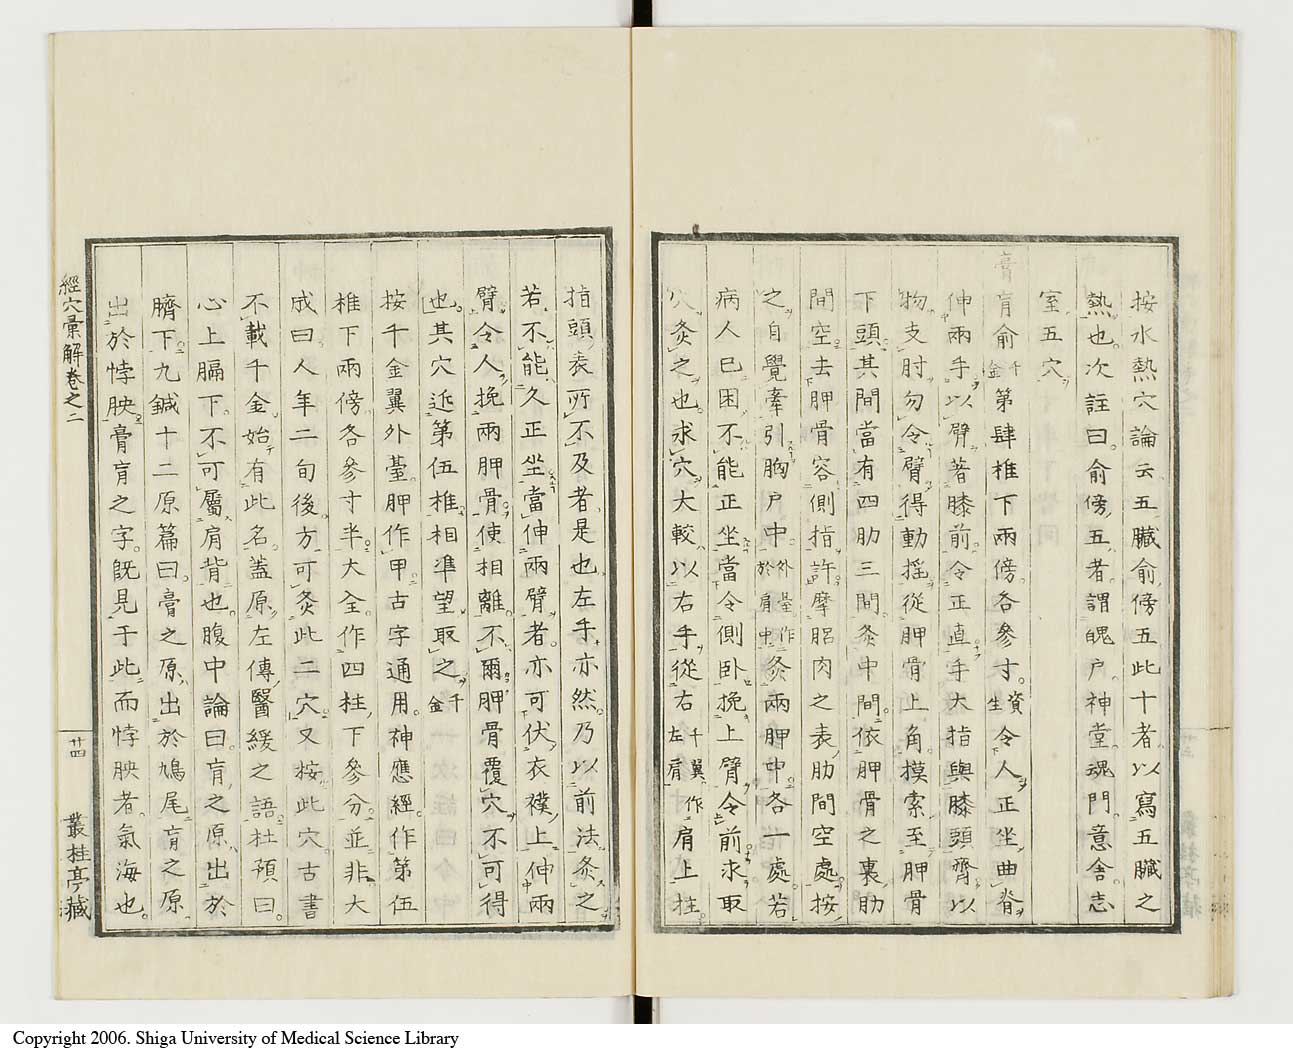 按水熱穴論云五臓俞傍五此十者以寫五臓之
熱也次註曰俞傍五者謂魄户神堂魂門意舍志
室五穴
膏肓俞千金第肆椎下兩傍各參寸資生令人正坐曲脊
伸兩手以臂著膝前令正直手大指與膝頭齊以
物支肘勿令臂得動搖從胛骨上角摸索至胛骨
下頭其間當有四肋三間灸中間依胛骨之裏肋
間空去胛骨容側指許摩䏚肉之表肋間空處按
之自覺牽引胸户中外臺作於肩中灸兩胛中各一處若
病人已困不能正坐當令側卧挽上臂令前求取
穴灸之也求穴大較以右手從右千翼作左肩肩上柱
指頭表所不及者是也左手亦然乃以前法灸之
若不能久正坐當伸兩臂者亦可伏衣襆上伸兩
臂令人挽兩胛骨使相離不爾胛骨覆穴不可得
也其穴近第伍椎相準望取之千金
按千金翼外臺胛作甲古字通用神應經作第伍
椎下兩傍各參寸半大全作四柱下參分並非大
成曰人年二旬後方可灸此二穴又按此穴古書
不載千金始有此名蓋原左傳醫緩之語杜預曰
心上膈下不可屬肩背也腹中論曰肓之原出於
臍下九鍼十二原篇曰膏之原出於鳩尾肓之原
出於悖胦膏肓之字既見于此而悖胦者氣海也
經穴彙解卷之二
廿四
叢桂亭藏
Copyright 2006. Shiga University of Medical Science Library